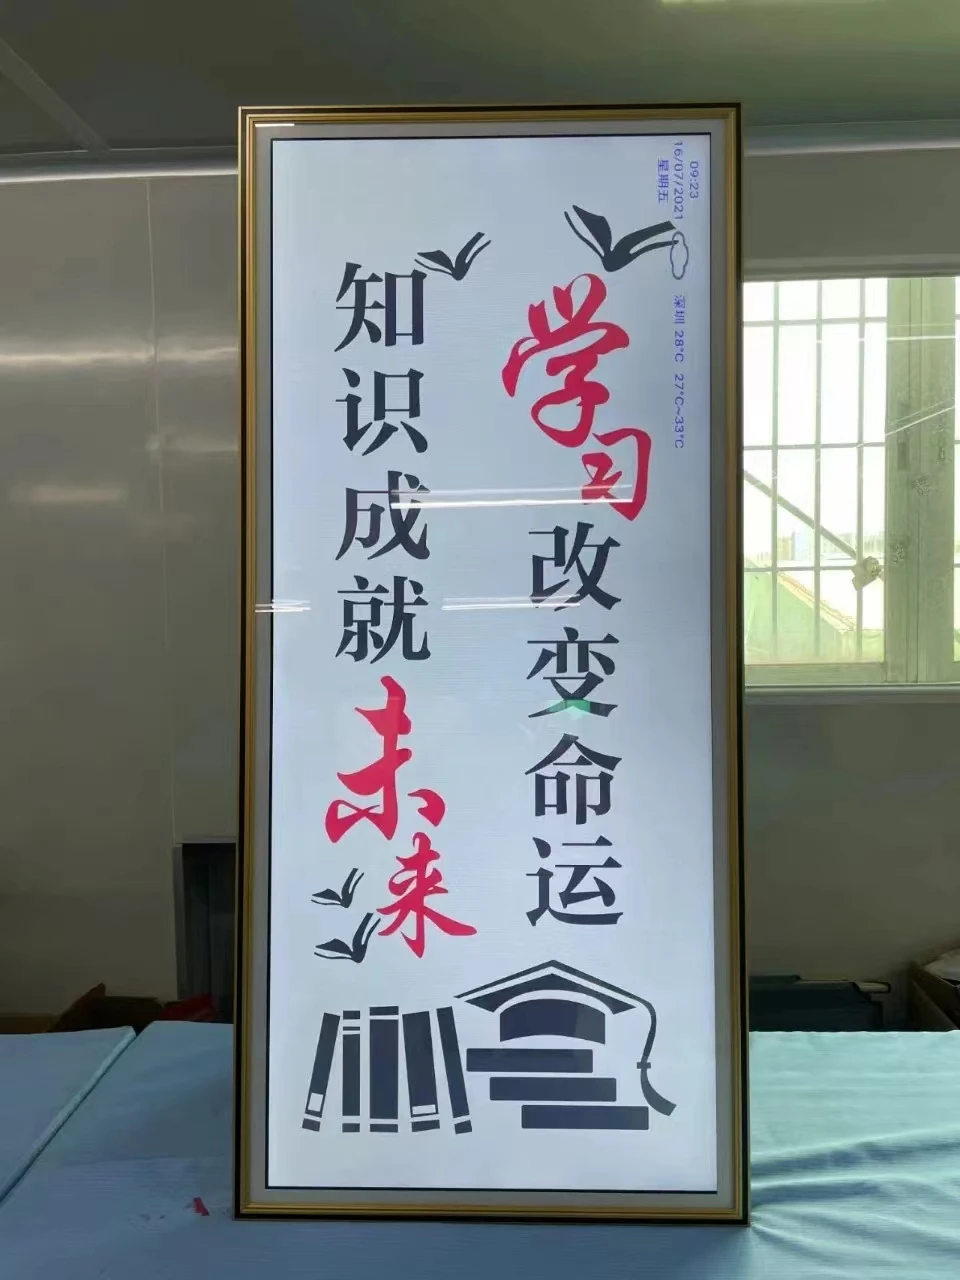 学习改变命运
知识成就未来
09:23
16/07/2021
星期五
深圳 28°C 27°C~33°C